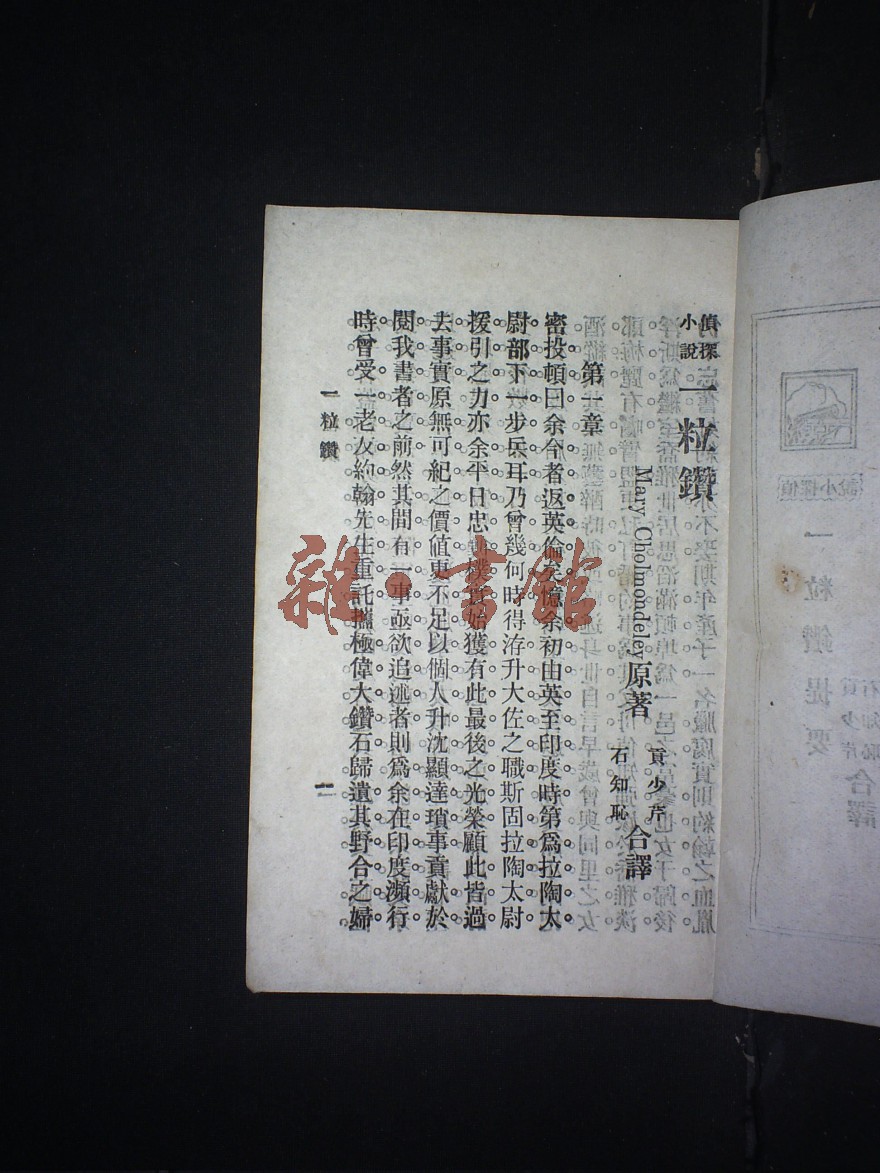 偵探
小說
一粒鑽
Mary Cholmondeley 原著
貢少芹
石知恥
合譯
第一章
密投頓曰余今者返英倫矣憶余初由英至印度時第爲拉陶太
尉部下一步兵耳乃曾幾何時得洊升大佐之職斯固拉陶太尉
援引之力亦余平日忠樸實始獲有此最後之光榮顧此皆過
去事實原無可紀之價値更不足以個人升沈顯達瑣事貢獻於
閱我書者之前然其間有一事亟欲追述者則爲余在印度瀕行
時曾受一老友約翰先生重託攜極偉大鑽石歸遺其野合之婦
一粒鑽
一
雜·書館
偵探小說
一粒鑽提要
貢少芹
石知恥
合譯